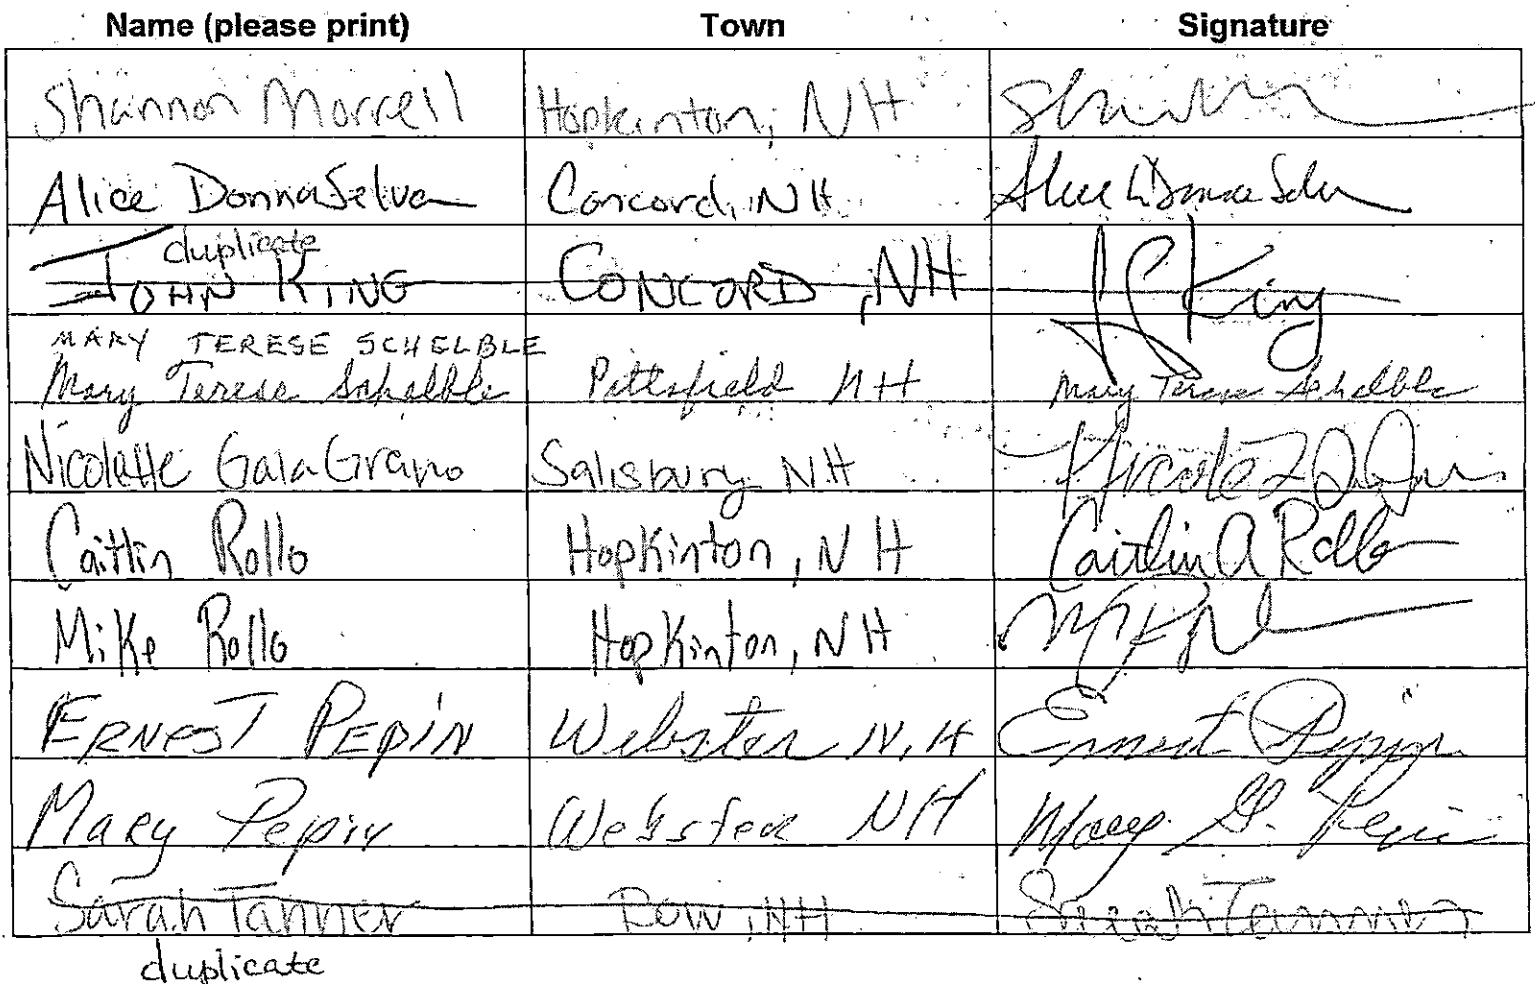 Name (please print) Town Signature
Shannon Morrell Hopkinton, NH
Alice DonnaSelva Concord, NH
duplicate
JOHN KING CONCORD, NH JSKing
MARY TERESE SCHELBLE
Mary Terese Schelble Pittsfield NH Mary Terese Schelble
Nicolette GalaGrano Salisbury NH
Caitlin Rollo Hopkinton, NH Caitlin A Rollo
Mike Rollo Hopkinton, NH
ERNEST PEPIN Webster N.H Ernest Pepin
Mary Pepin Webster NH Mary G. Pepin
Sarah Tanner Bow, NH Sarah Tanner
duplicate